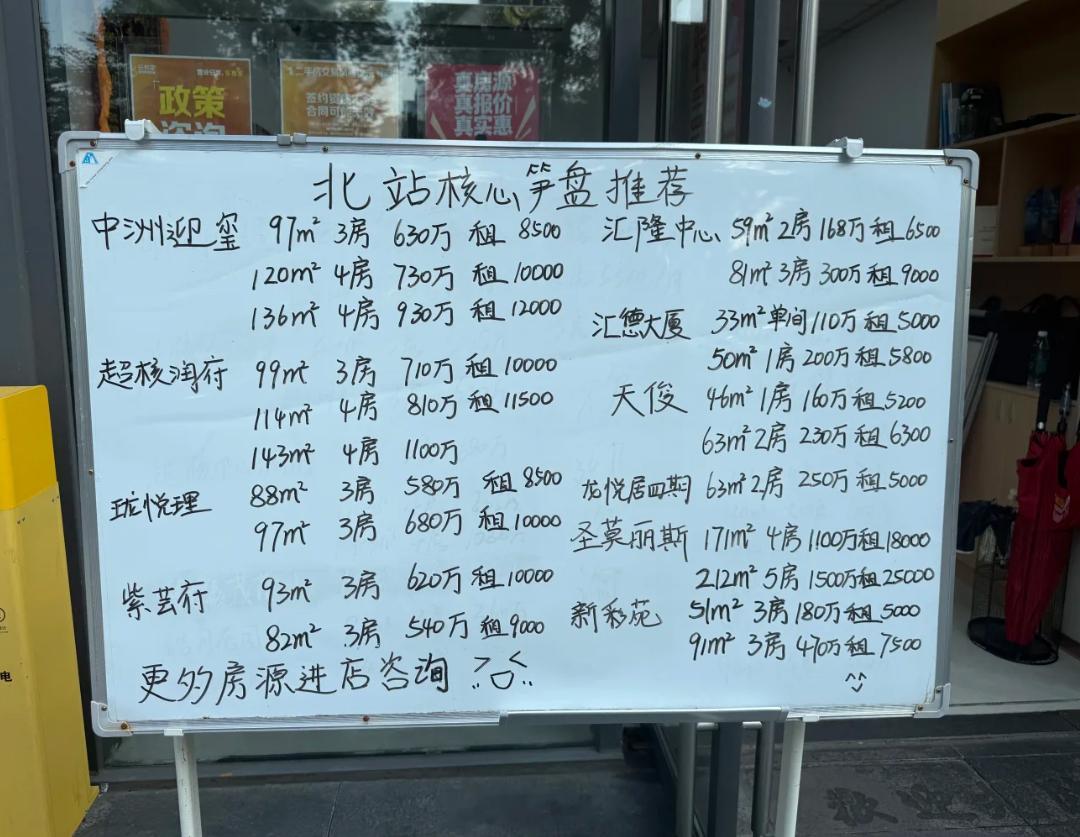 政策
咨询
二手房交易
签约
合同可
真房源
真报价
真实惠
北站核心笋盘推荐
中洲迎玺 97m² 3房 630万 租 8500
120m² 4房 730万 租 10000
136m² 4房 930万 租 12000
超核润府 99m² 3房 710万 租 10000
114m² 4房 810万 租 11500
143m² 4房 1100万
珑悦理 88m² 3房 580万 租 8500
97m² 3房 680万 租 10000
紫芸府 93m² 3房 620万 租 10000
82m² 3房 540万 租 9000
更多房源进店咨询
汇隆中心 59m² 2房 168万 租 6500
81m² 3房 300万 租 9000
汇德大厦 33m² 单间 110万 租 5000
50m² 1房 200万 租 5800
天俊 46m² 1房 160万 租 5200
63m² 2房 230万 租 6300
龙悦居四期 63m² 2房 250万 租 5000
圣莫丽斯 171m² 4房 1100万 租 18000
212m² 5房 1500万 租 25000
新彩苑 51m² 3房 180万 租 5000
91m² 3房 470万 租 7500
电